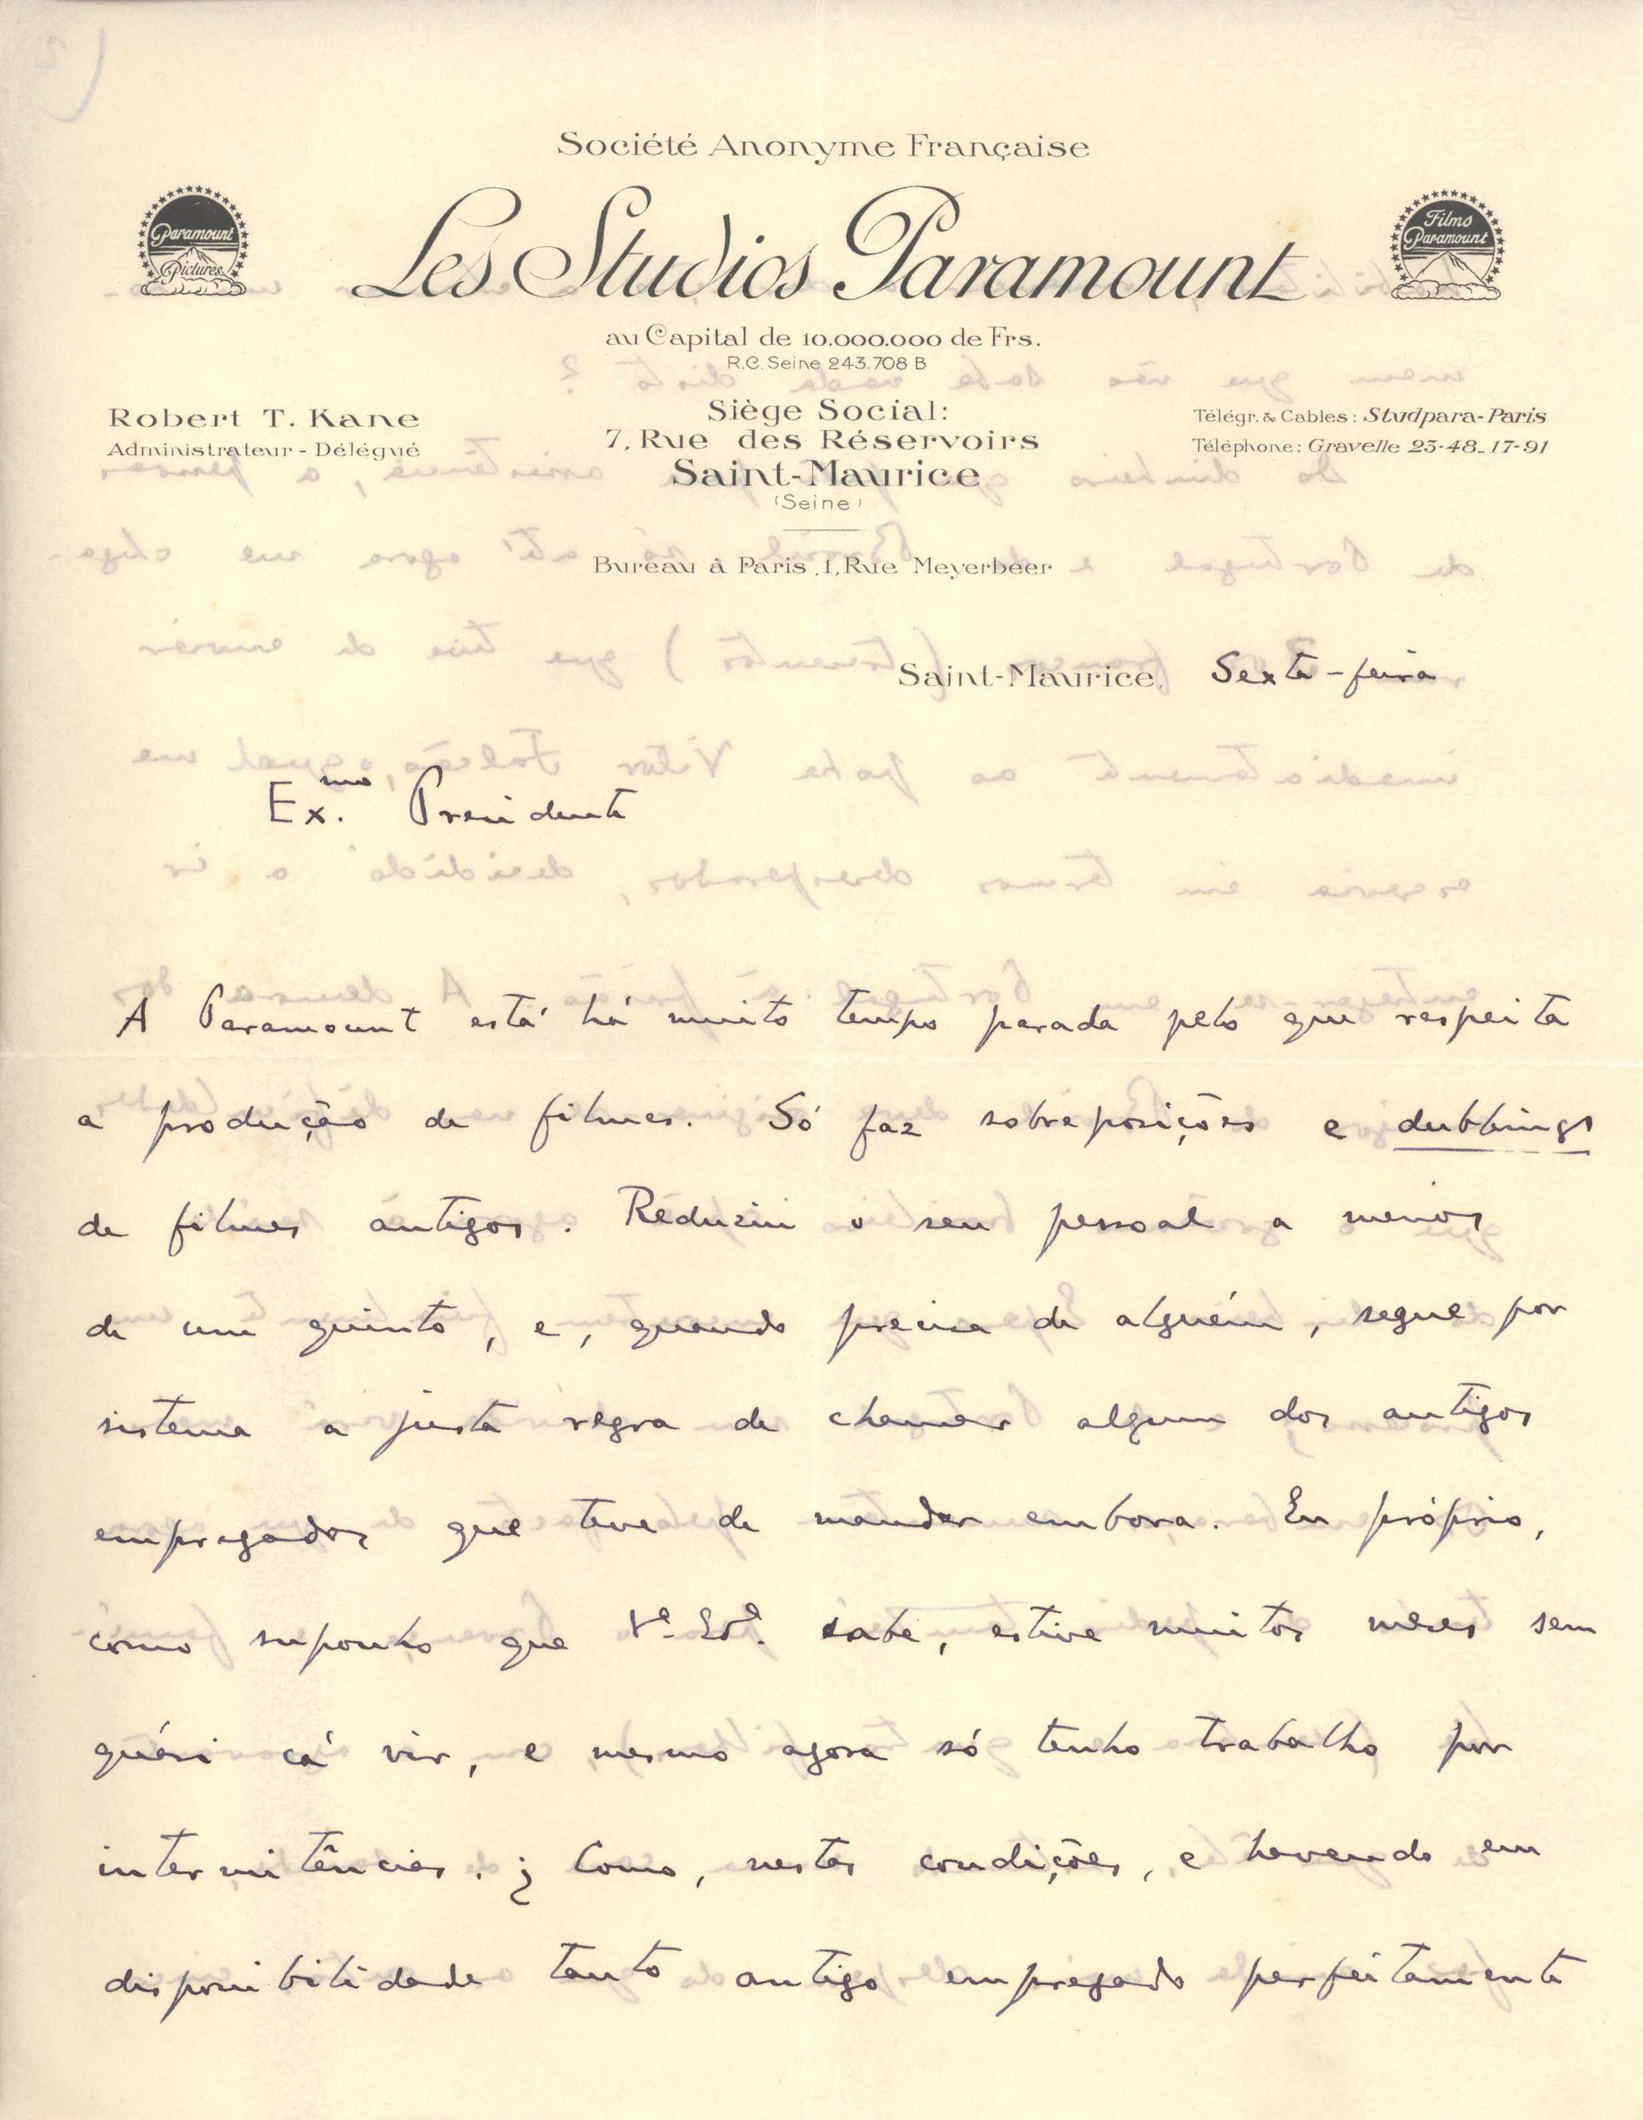 Société Anonyme Française
Paramount
Pictures
Les Studios Paramount
Films
Paramount
au Capital de 10.000.000 de Frs.
R.C. Seine 243.708 B
Robert T. Kane
Administrateur - Délégué
Siège Social:
7, Rue des Réservoirs
Saint-Maurice
(Seine)
Télégr. & Cables: Studpara-Paris
Téléphone: Gravelle 23-48_17-91
Bureau à Paris, 1, Rue Meyerbeer
Saint-Maurice, Sexta-feira
Ex.mo Presidente
A Paramount está há muito tempo parada pelo que respeita
a produção de filmes. Só faz sobreposições e dubbings
de filmes antigos. Reduziu o seu pessoal a menos
de um quinto, e, quando precisa de alguém, segue por
sistema a justa regra de chamar algum dos antigos
empregados que teve de mandar embora. Eu próprio,
como suponho que V.ª Ex.ª sabe, estive muitos meses sem
quási cá vir, e mesmo agora só tenho trabalho por
intermitências. ¿ Como, nestas condições, e havendo em
disponibilidade tanto antigo empregado perfeitamente